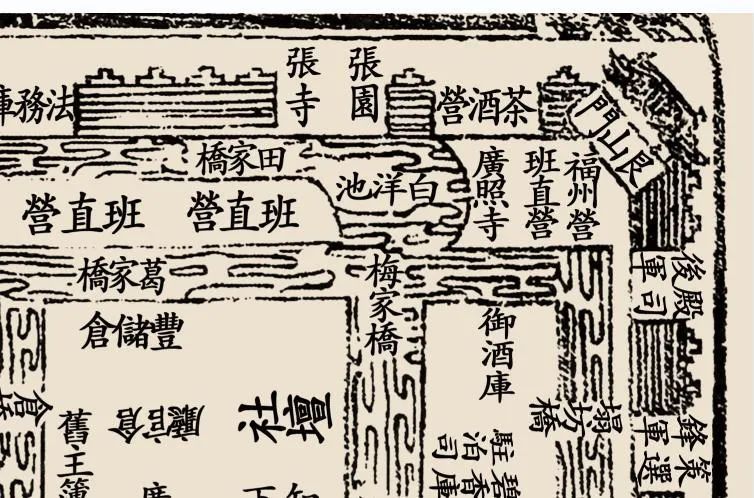 張寺
張園
法務庫
茶酒營
艮山門
田家橋
白洋池
廣照寺
班直營
福州營
班直營
班直營
葛家橋
梅家橋
後殿
軍司
豐儲倉
御酒庫
倉
社壇
廳官倉
塌坊橋
舊主簿
駐泊司
碧香庫
策選
鋒軍